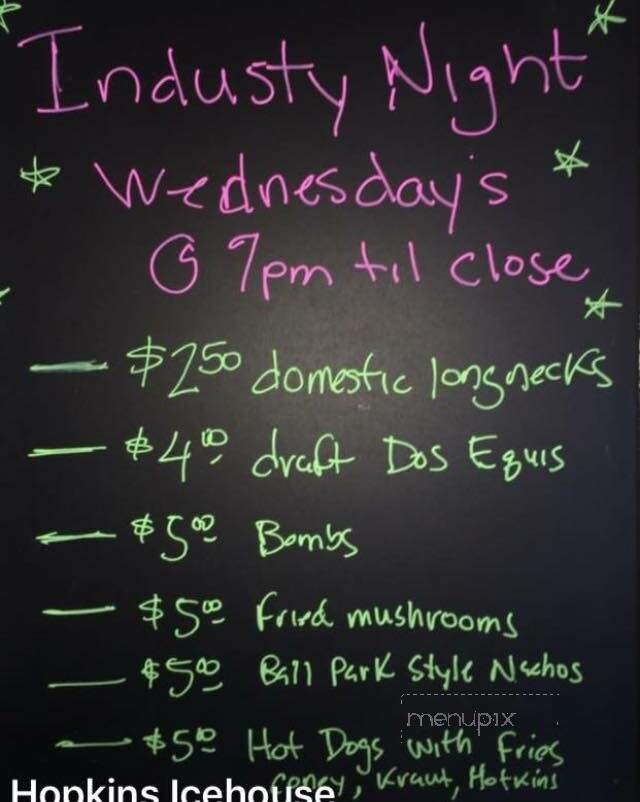 Industy Night
Wednesday's
@ 7pm til close
— $2.50 domestic longnecks
— $4.00 draft Dos Equis
— $5.00 Bombs
— $5.00 Fried mushrooms
— $5.00 Ball Park Style Nachos
menupix
— $5.00 Hot Dogs with Fries
Coney, Kraut, Hotkins
Hopkins Icehouse